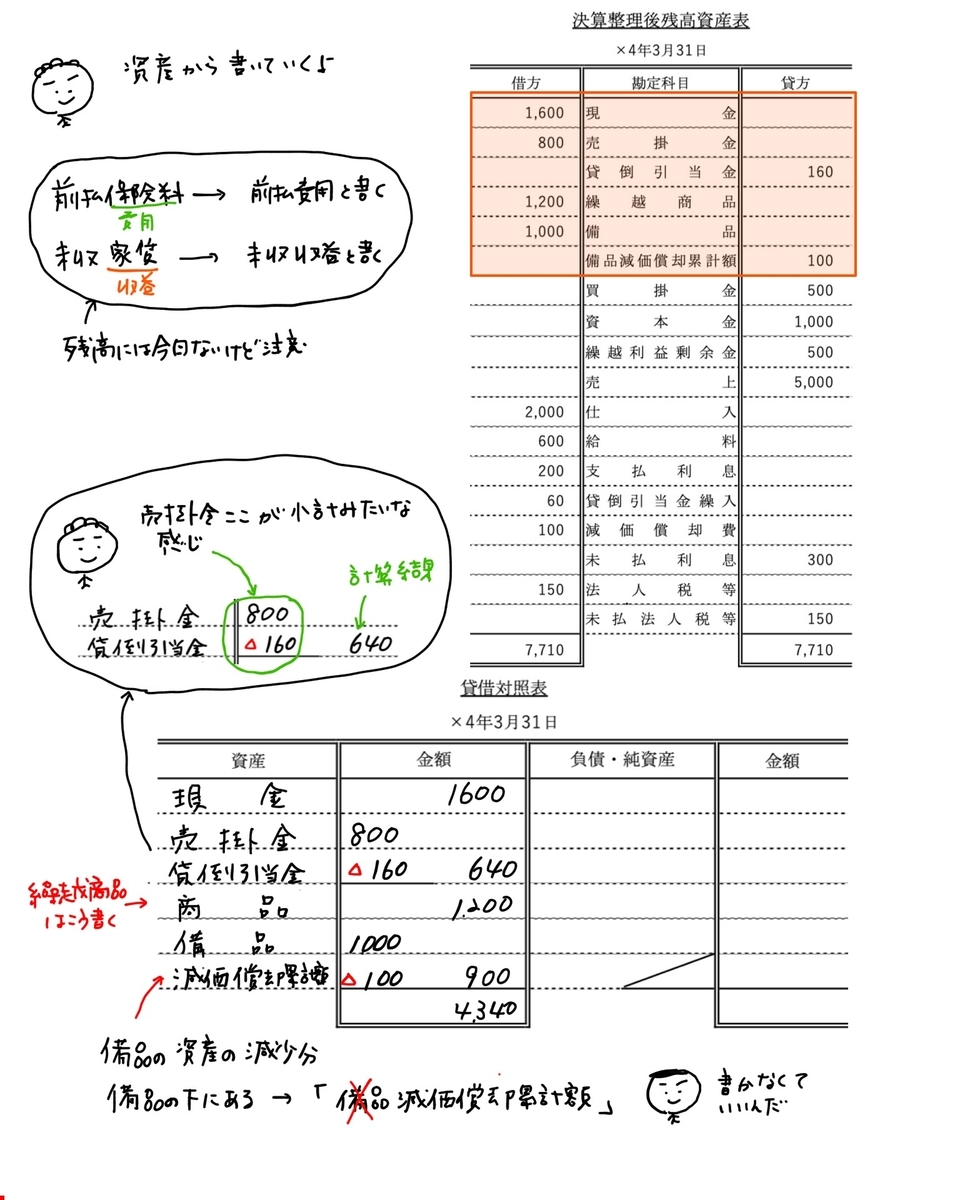 決算整理後残高資産表
×4年3月31日
借方 勘定科目 貸方
1,600 現金
800 売掛金
貸倒引当金 160
1,200 繰越商品
1,000 備品
備品減価償却累計額 100
買掛金 500
資本金 1,000
繰越利益剰余金 500
売上 5,000
2,000 仕入
600 給料
200 支払利息
60 貸倒引当金繰入
100 減価償却費
未払利息 300
150 法人税等
未払法人税等 150
7,710 7,710
資産から書いていくよ
前払保険料 → 前払費用と書く
費用
未収家賃 → 未収収益と書く
収益
残高には今回ないけど注意
売掛金ここが小計みたいな
感じ
計算結果
売掛金 800
貸倒引当金 △160 640
貸借対照表
×4年3月31日
資産 金額 負債・純資産 金額
現金 1600
売掛金 800
貸倒引当金 △160 640
商品 1,200
備品 1000
減価償却累計額 △100 900
4,340
繰越商品
はこう書く
備品の資産の減少分
備品の下にある → 「備品減価償却累計額」
書かなくて
いいんだ